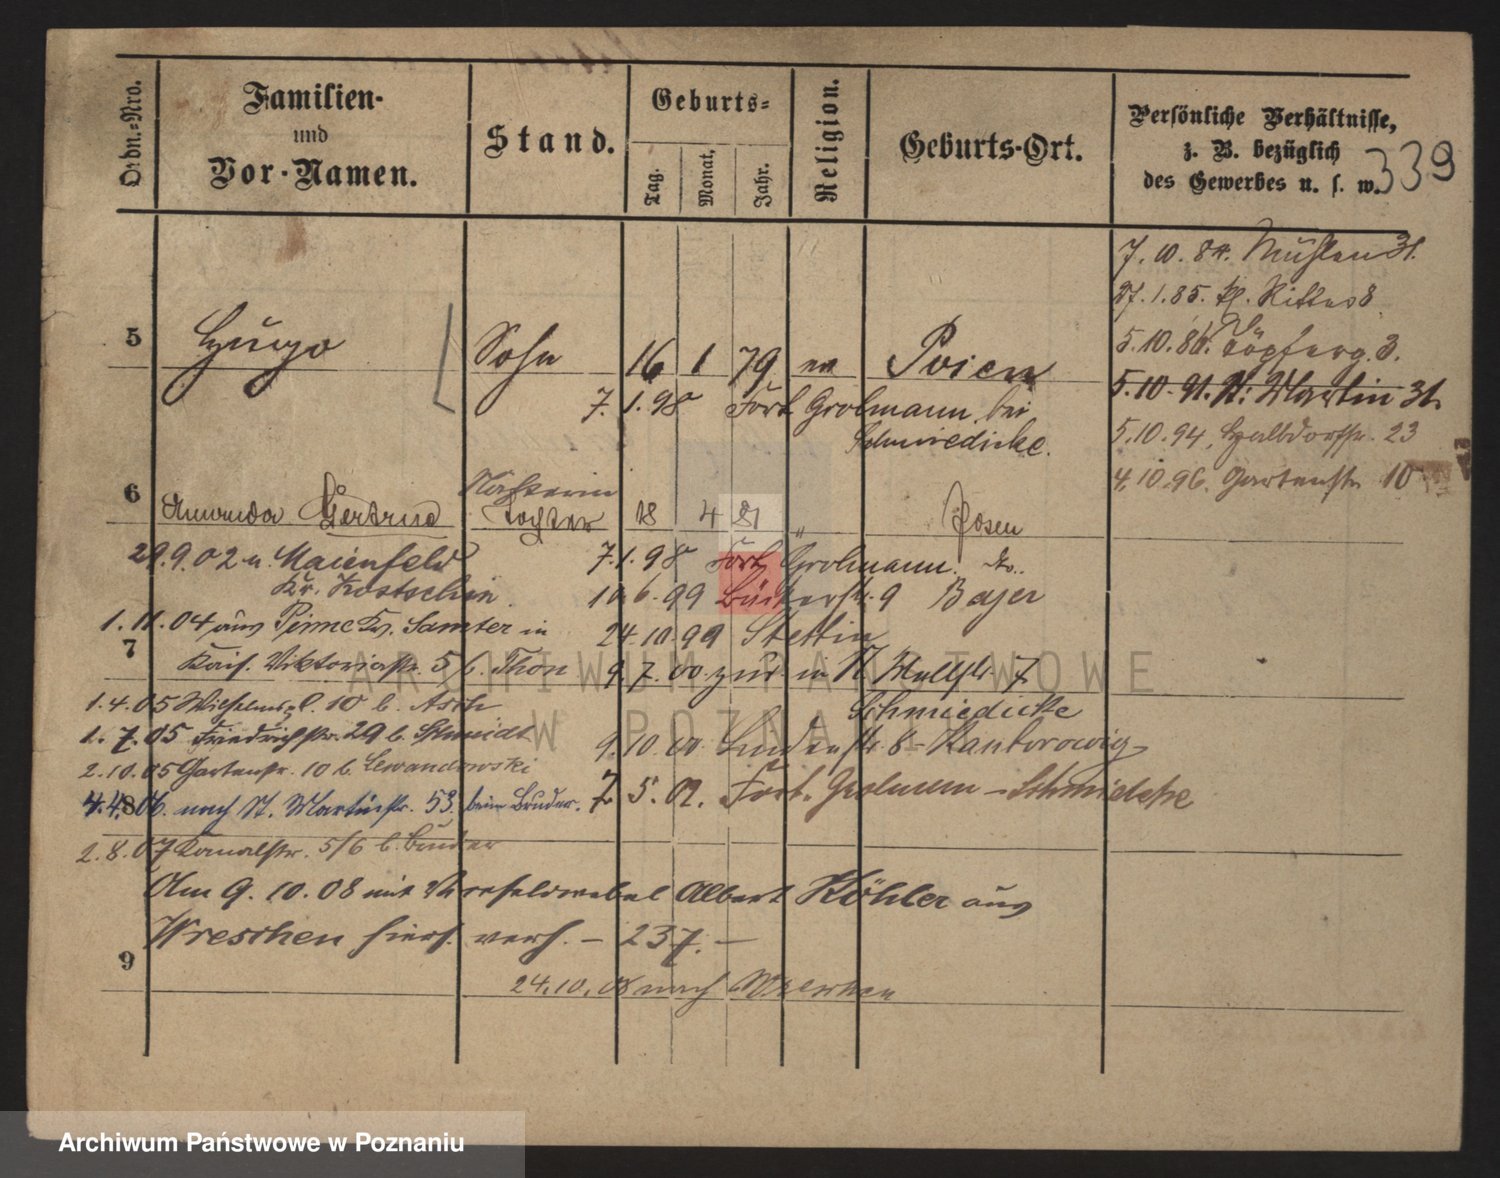 Ordn.-Nro.
Familien-
und
Vor-Namen.
Stand.
Geburts-
Tag.
Monat.
Jahr.
Religion.
Geburts-Ort.
Persönliche Verhältnisse,
z. B. bezüglich
des Gewerbes u. s. w.
339
7. 10. 84. Mühlen 31.
27. 1. 85. Kl. Ritter 8
5. 10. 86. Töpferg. 3.
5. 10. 91. St. Martin 31.
5. 10. 94. Halbdorfstr. 23
4. 10. 96. Gartenstr. 10
5 Hugo Sohn 16 1 79 Posen
7. 1. 98 Fort Grolmann bei
Schmiedicke.
6 Amanda Gertrud Tochter 18 4 81 " Posen
29. 9. 02 n. Maienfeld 7. 1. 98 Fort Grolmann.
Kr. Kostschin 10. 6. 99 9 Bajer
1. 11. 04 aus Pinne Kr. Samter in 24. 10. 99 Stettin
7 Kais. Viktoriastr. 5/6. Thon 9. 7. 00 zur. in St. Wallstr. 7
Schmiedicke
1. 4. 05 Wilhelmspl. 10 b. Asch
1. 7. 05 Friedrichstr. 29 b. Schmidt 9. 10. 00 Lindenstr. 8 - Kantorowicz
2. 10. 05 Gartenstr. 10 b. Lewandowski
8 4. 4. 06. nach St. Martinstr. 53. beim Bruder. 7. 5. 02. Fort. Grolmann - Schmiedicke
2. 8. 07 Kanalstr. 5/6 b. Bruder
Am 9. 10. 08 mit Albert Köhler aus
Wreschen hiers. verh. - 237. -
9
24. 10. 08 nach Wreschen
ARCHIWUM PAŃSTWOWE
W POZNANIU
Archiwum Państwowe w Poznaniu